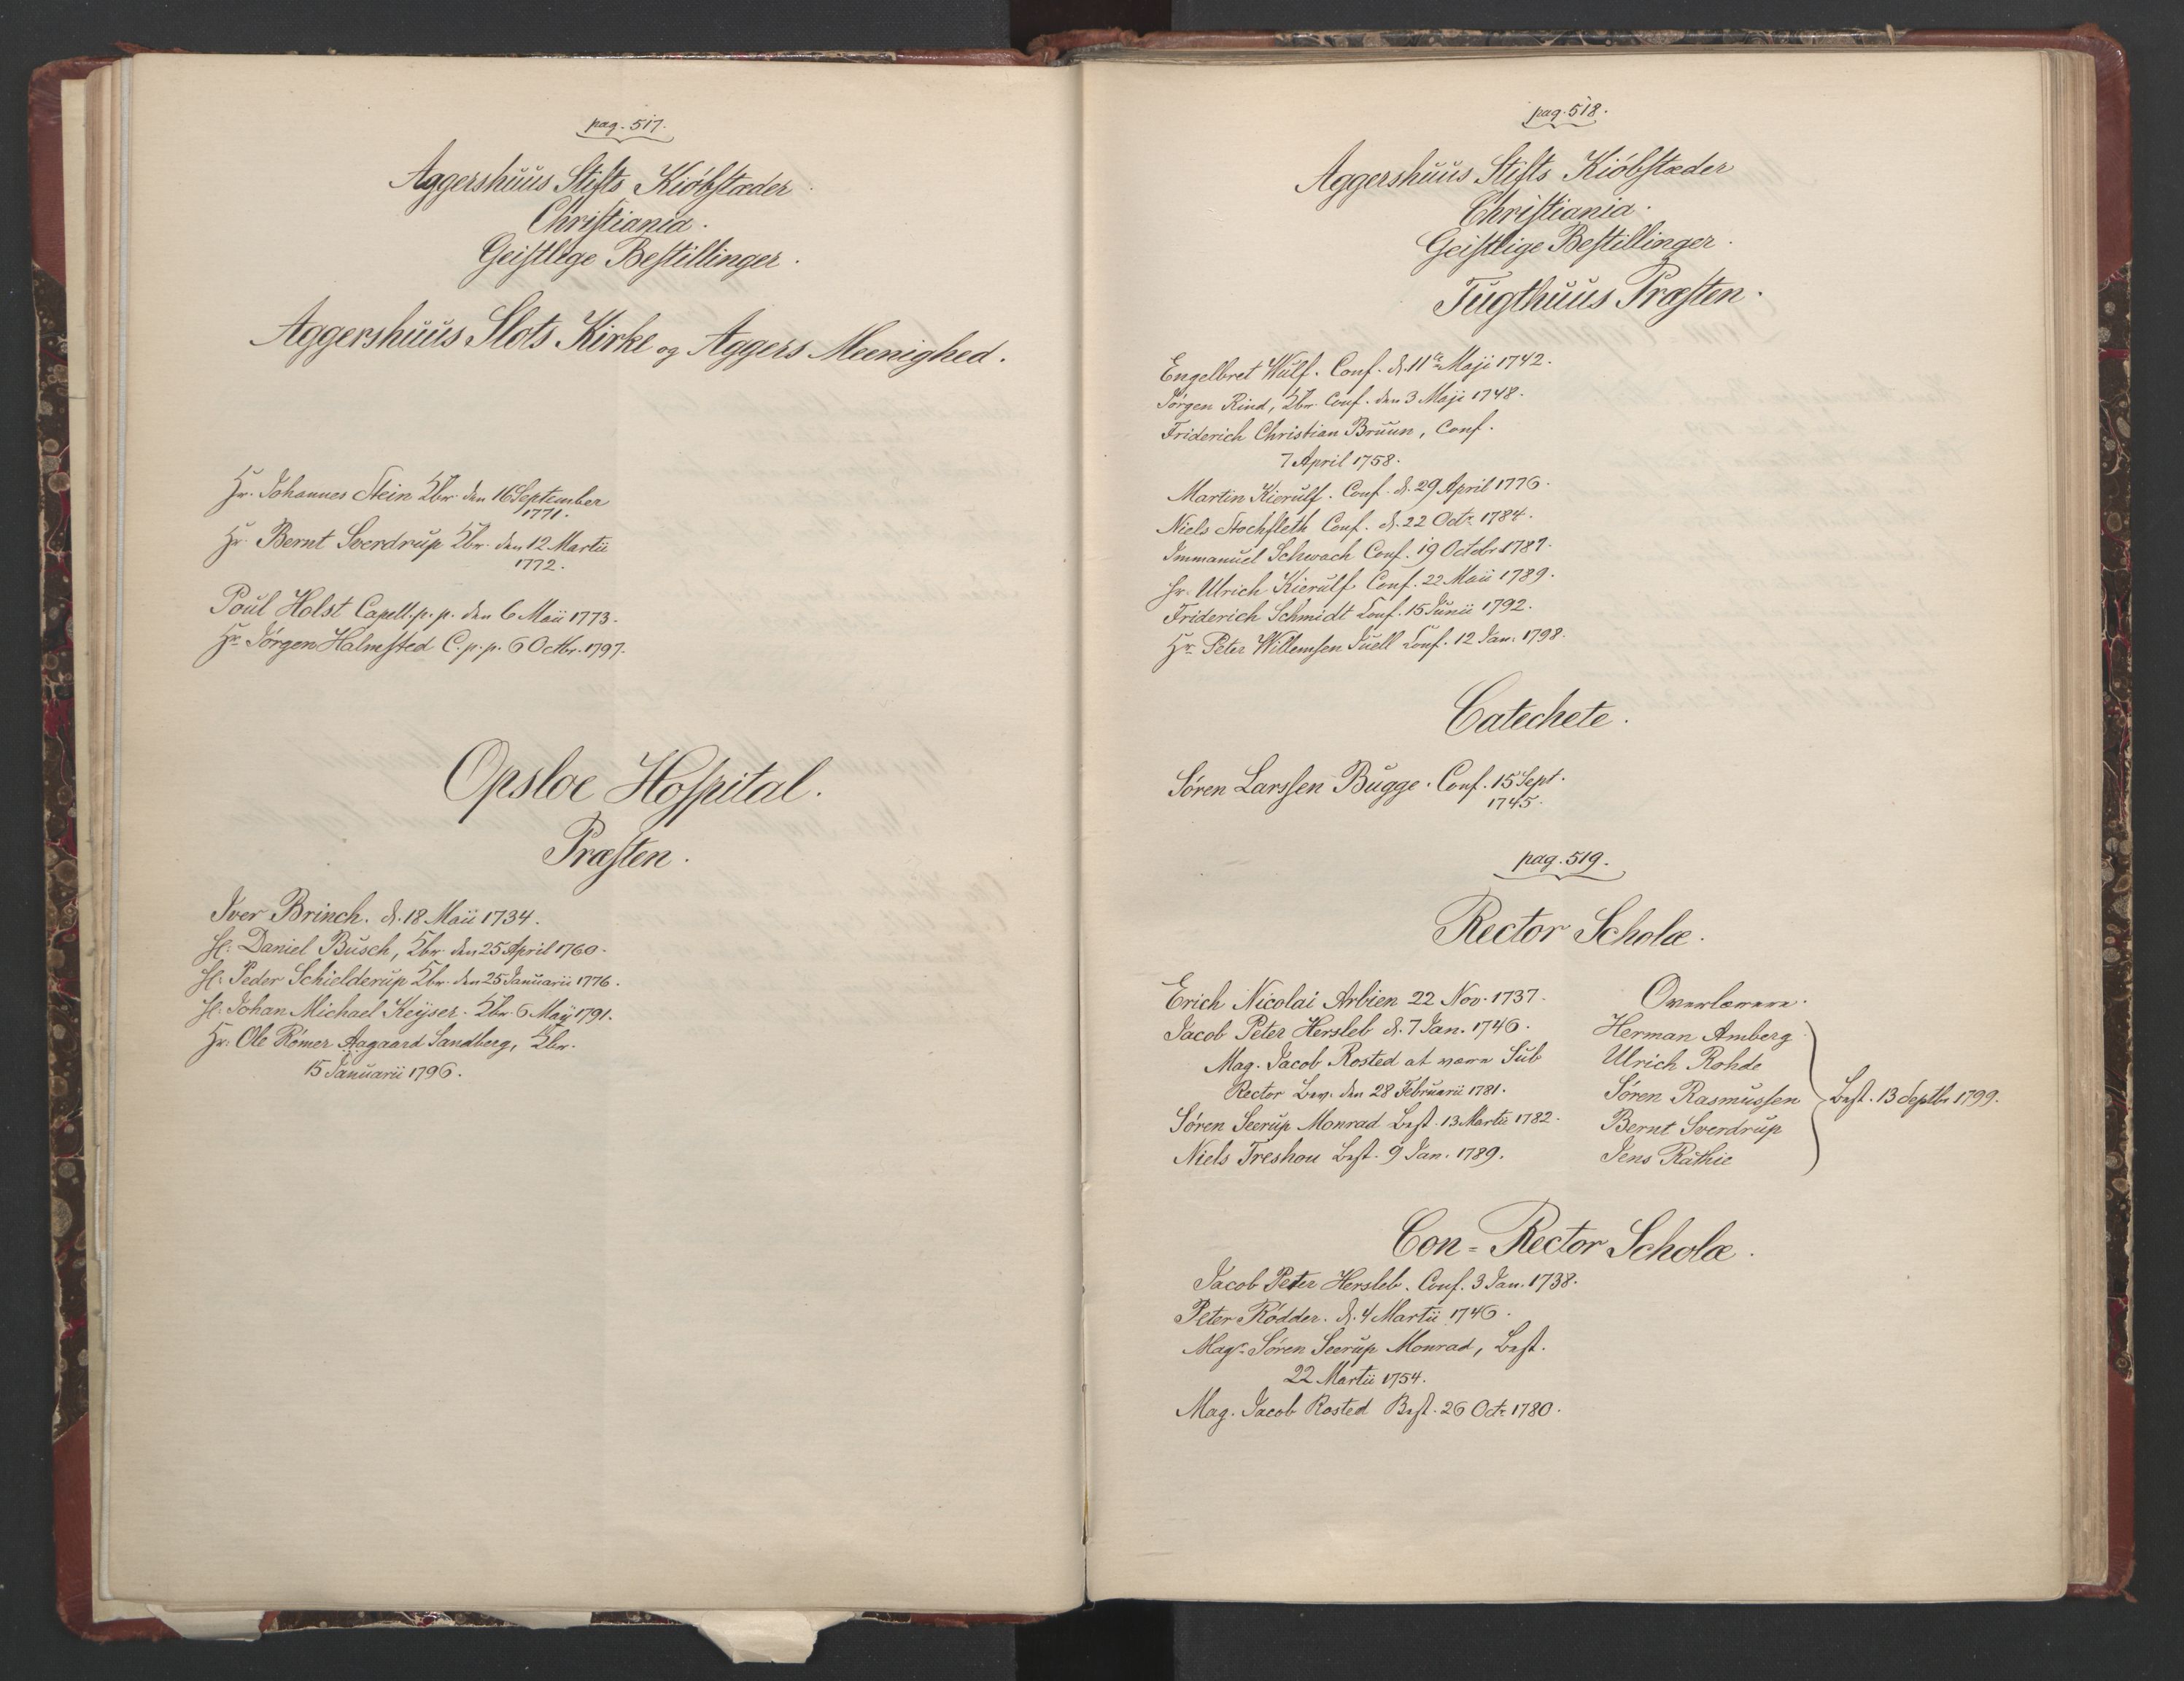 pag. 517.
Aggershuus Stifts Kiöbstæder.
Christiania.
Geistlige Bestillinger.
Aggershuus Slots Kirke og Aggers Meenighed.
Hr. Johannes Stein Kbr. den 16 September
1771.
Hr. Bernt Sverdrup Kbr. den 12 Martii
1772.
Poul Holst Capell. p. p. den 6 Maii 1773.
Hr. Jörgen Halmsted C. p. p. 6 Octbr. 1797.
Opsloe Hospital.
Præsten.
Iver Brinch. d. 18 Maii 1734.
H: Daniel Busch, Kbr. den 25 April 1760.
H: Peder Schielderup Kbr. den 25 Januarii 1776.
H: Johan Michael Keyser. Kbr. 6 May 1791.
Hr: Ole Römer Aagaard Sandberg, Kbr.
15 Januarii 1796.
pag. 518.
Aggershuus Stifts Kiöbstæder
Christiania.
Geistlige Bestillinger.
Tugthuus Præsten.
Engelbret Wulf. Conf. d. 11te Maji 1742.
Jörgen Rind, Kbr. Conf. den 3 Maji 1748.
Friderich Christian Bruun, Conf.
7 April 1758.
Martin Kierulf. Conf. d. 29 April 1776.
Niels Stochfleth Conf. d. 22 Octr. 1784.
Immanuel Schwach Conf. 19 Octobr 1787.
Hr. Ulrich Kierulf Conf. 22 Maii 1789.
Friderich Schmidt Conf. 15 Junii 1792.
Hr. Peter Willemsen Juell Conf. 12 Jan. 1798.
Catechete.
Sören Larssen Bugge. Conf. 15 Sept.
1745.
pag. 519.
Rector Scholæ.
Erich Nicolai Arbien 22 Nov. 1737.
Jacob Peter Hersleb d. 7 Jan. 1746.
Mag. Jacob Rosted at være Sub
Rector Bev. den 28 Februarii 1781.
Sören Seerup Monrad Best. 13 Martii 1782.
Niels Treshou Best. 9 Jan. 1789.
Overlærere.
Herman Amberg
Ulrich Rohde
Sören Rasmussen Best. 13 Septbr 1799.
Bernt Sverdrup
Jens Rathie
Con-Rector Scholæ.
Jacob Peter Hersleb. Conf. 3 Jan. 1738.
Peter Rödder. d. 4 Martii 1746.
Magr. Sören Seerup Monrad, Best.
22 Martii 1754.
Mag. Jacob Rosted Best. 26 Octr. 1780.